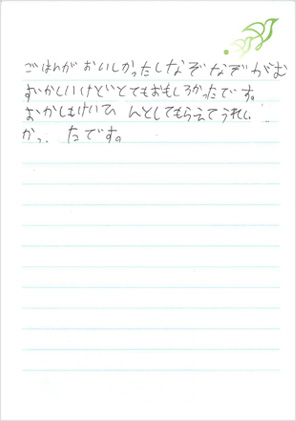 ごはんがおいしかったしなぞなぞがむ
ずかしいけどとてもおもしろかったです。
おかしもけいひんとしてもらえてうれし
かっ たです。